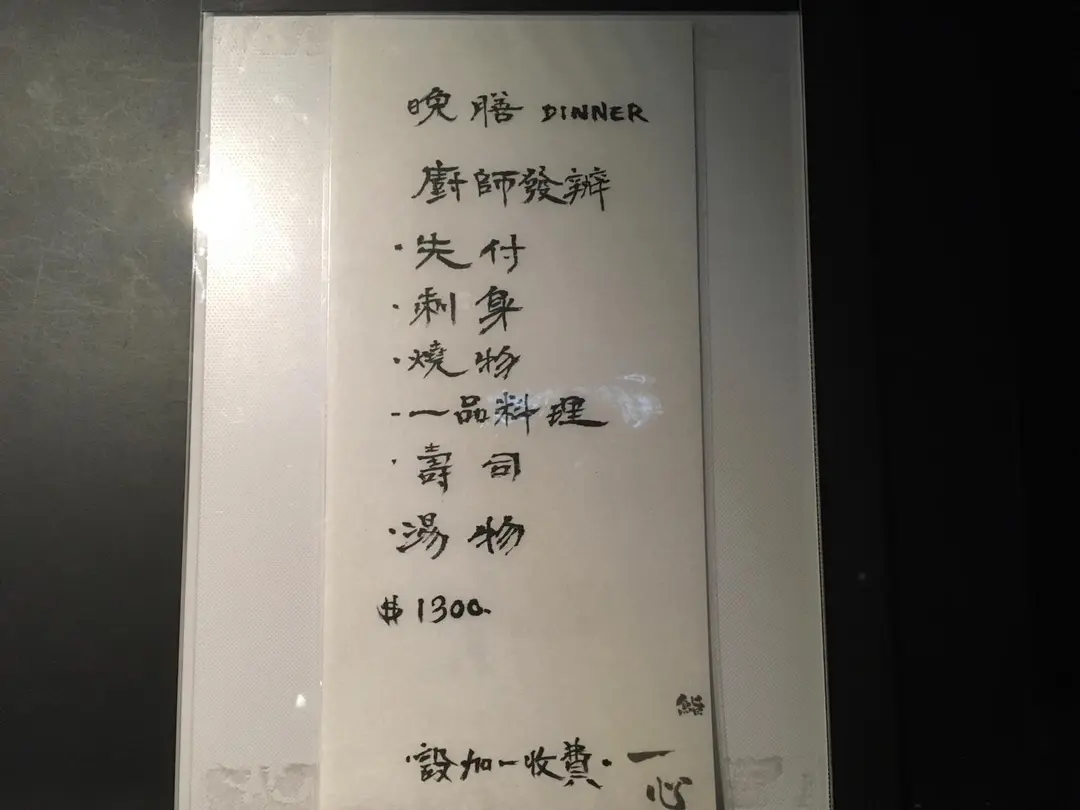 晚膳 DINNER
廚師發辦
·先付
·刺身
·燒物
·一品料理
·壽司
·湯物
$1300.
·設加一收費·
鮨
一心